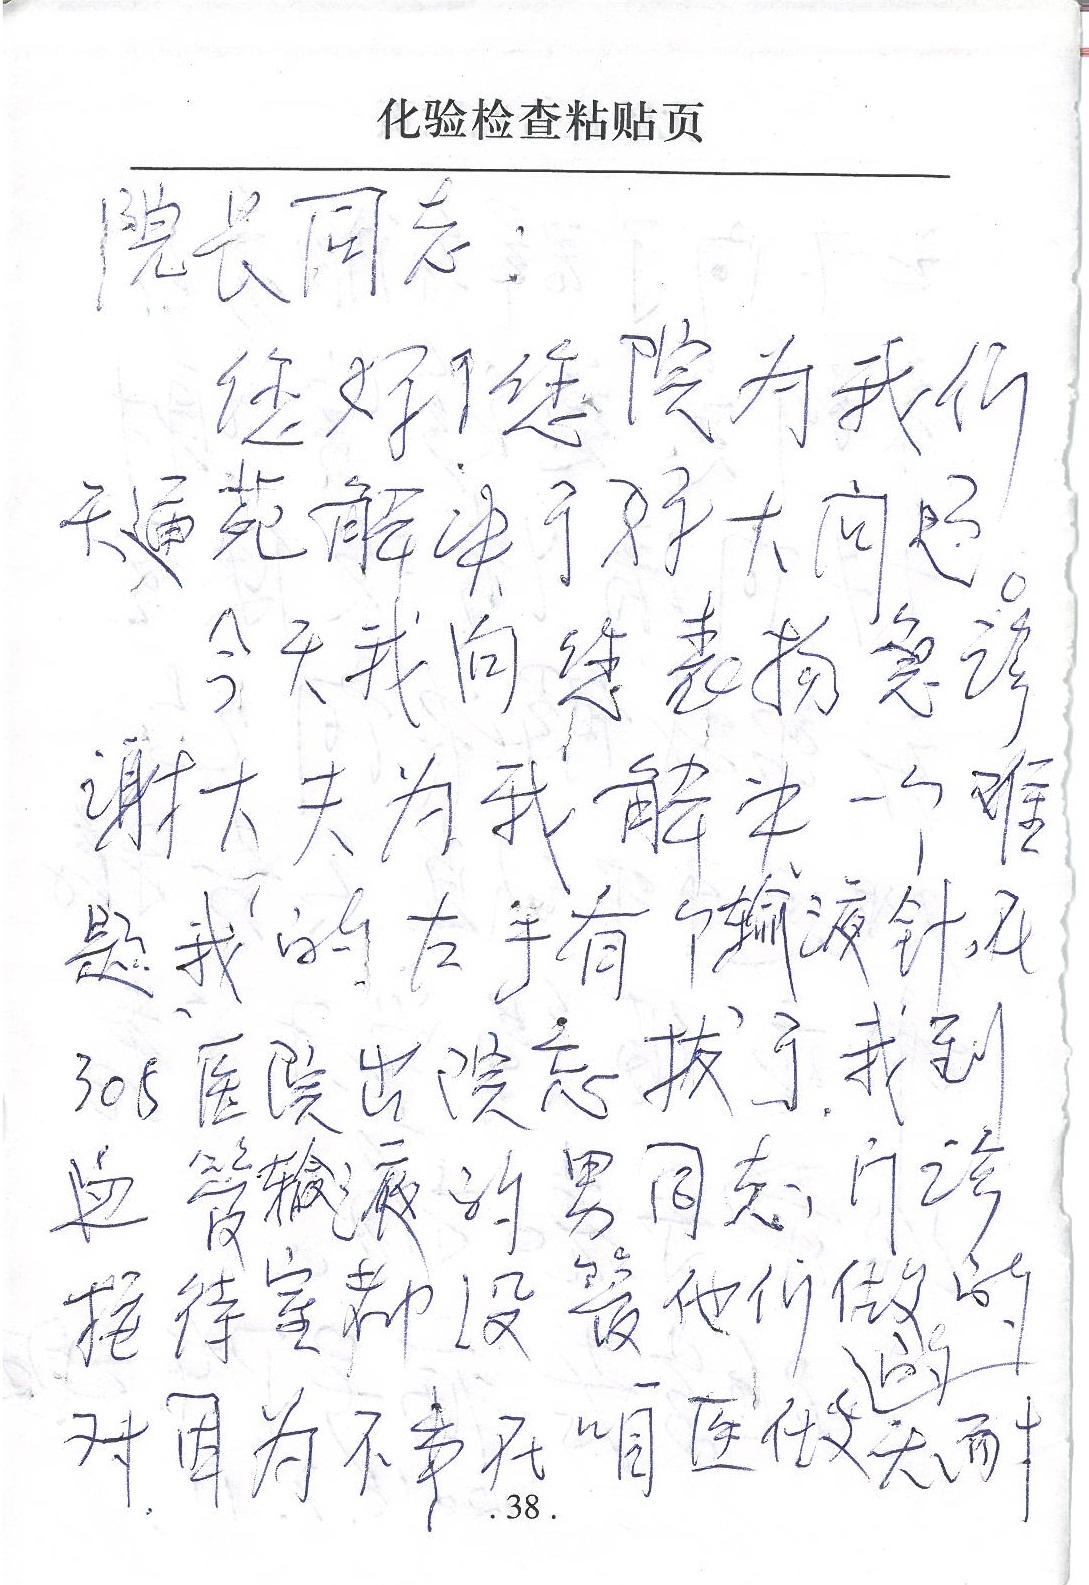 化验检查粘贴页
院长同志：
您好！您院为我们
天通苑解决了好大问题。
今天我向您表扬急诊
谢大夫为我解决一个难
题，我的左手有个输液针，在
305医院出院忘拔了，我到
管输液的男同志、门诊
接待室都没管他们做的
对，因为不事在咱医做的，天，而
.38.